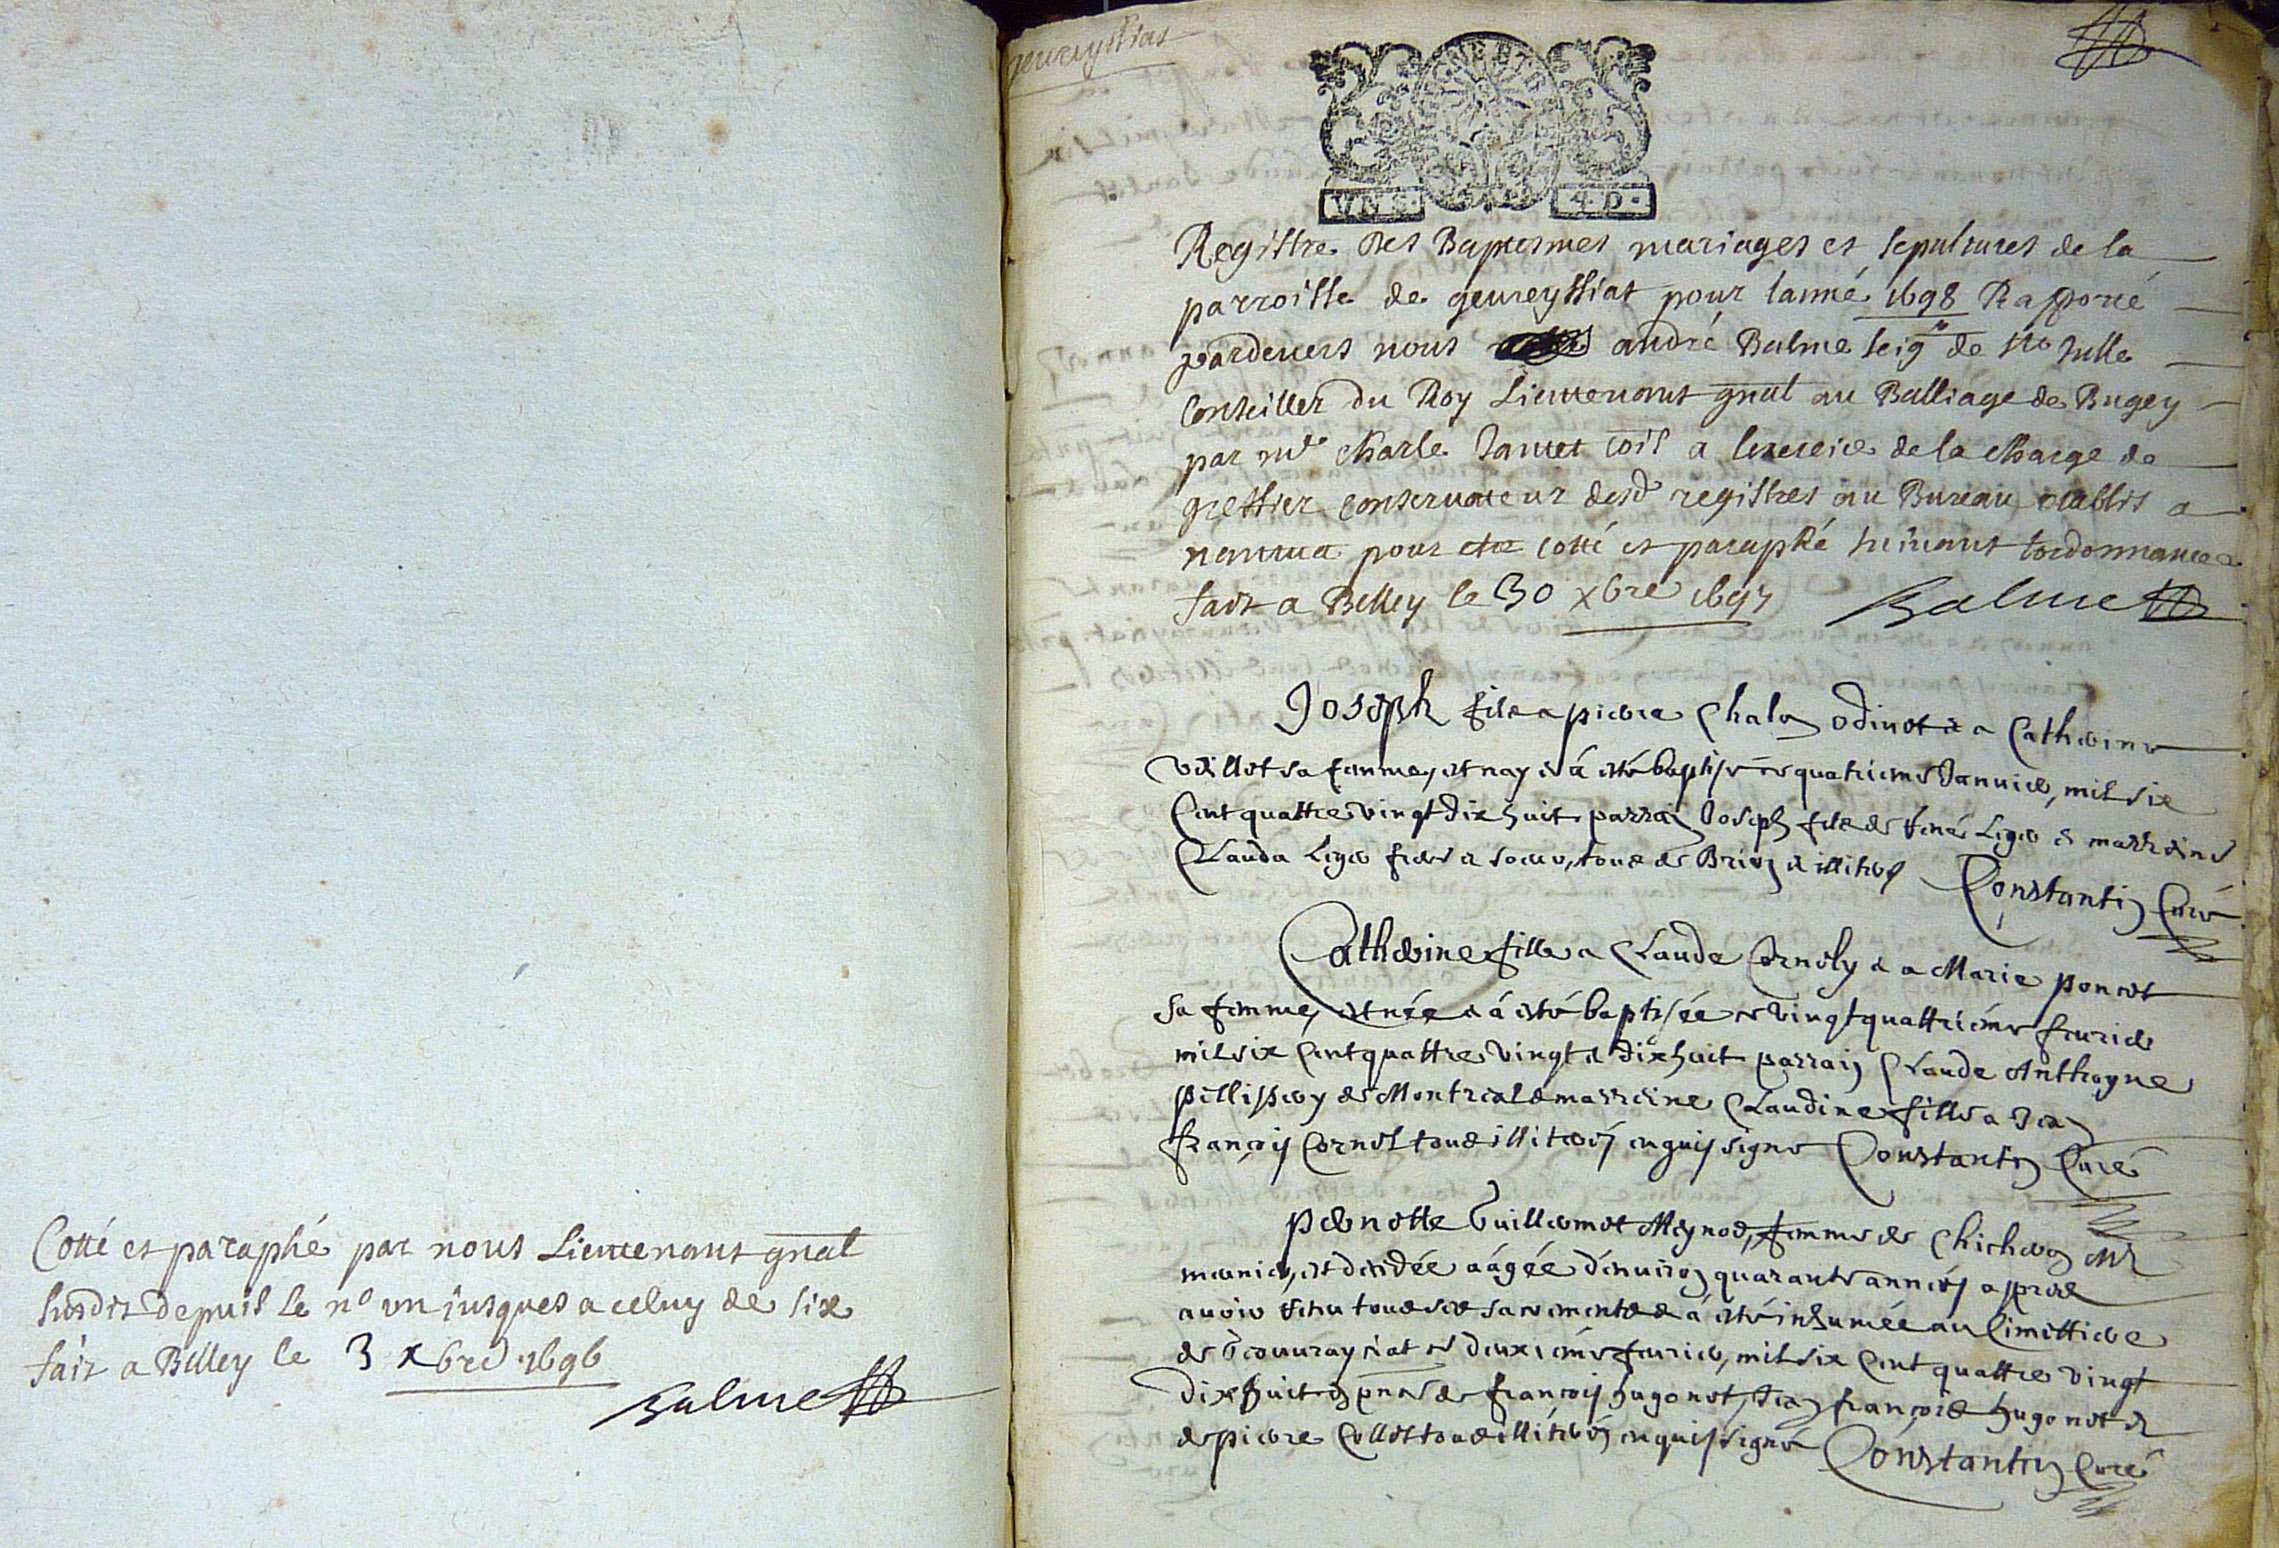 Cotté et paraphé par nous Lieutenant gnal
susdit depuis le n° un jusques a celuy de six
fait a Belley le 3 xbre 1696
Balme
geureyssiat
UN S. 4. D.
Registre des Baptesmes mariages et sepultures de la
parroisse de geureyssiat pour lanné 1698 Rapporté
pardevers nous andré Balme seigr de Ste Julle
Conseiller du Roy Lieutenant gnal au Balliage de Bugey
par Me Charle Jantet à lexercice de la charge de
greffier conservateur desd registres au Bureau establis a
nantua pour etre cotté et paraphé suivant lordonnance
fait a Belley le 30 xbre 1697 Balme
Joseph fils a pierre Chalon odinot & a Catherine
vuillot sa femme, est nay & á esté baptisé ce quatrieme Janvier, mil six
Cent quattre vingt dix huit parrain Joseph fils de Liger & marreine
Clauda Liger frere & soeur, tous de Brion & illiteres Constantin Curé
Catherine fille a Claude Cornely & a Marie poncet
sa femme, est née & á esté baptisée ce vingt quattriéme feurier
mil six Cent quattre vingt & dix huit parrain Claude Anthoyne
de Montreal & marreine Claudine fille a Jean
françois Cornel tous illiterés enquis signé Constantin Curé
pernette Vuillermot Meynod, femme de Chicheron Me
meunier, est decedée aágée d'environ quarante années apres
avoir receu tous ses sacrements & á esté inhumée au Cimettiere
de Geouvrayciat ce deuxiéme feurier, mil six Cent quattre vingt
dix huit en pnce de françois hugonot, Jean françois hugonot &
de pierre Collet tous illiterés enquis signé Constantin Curé